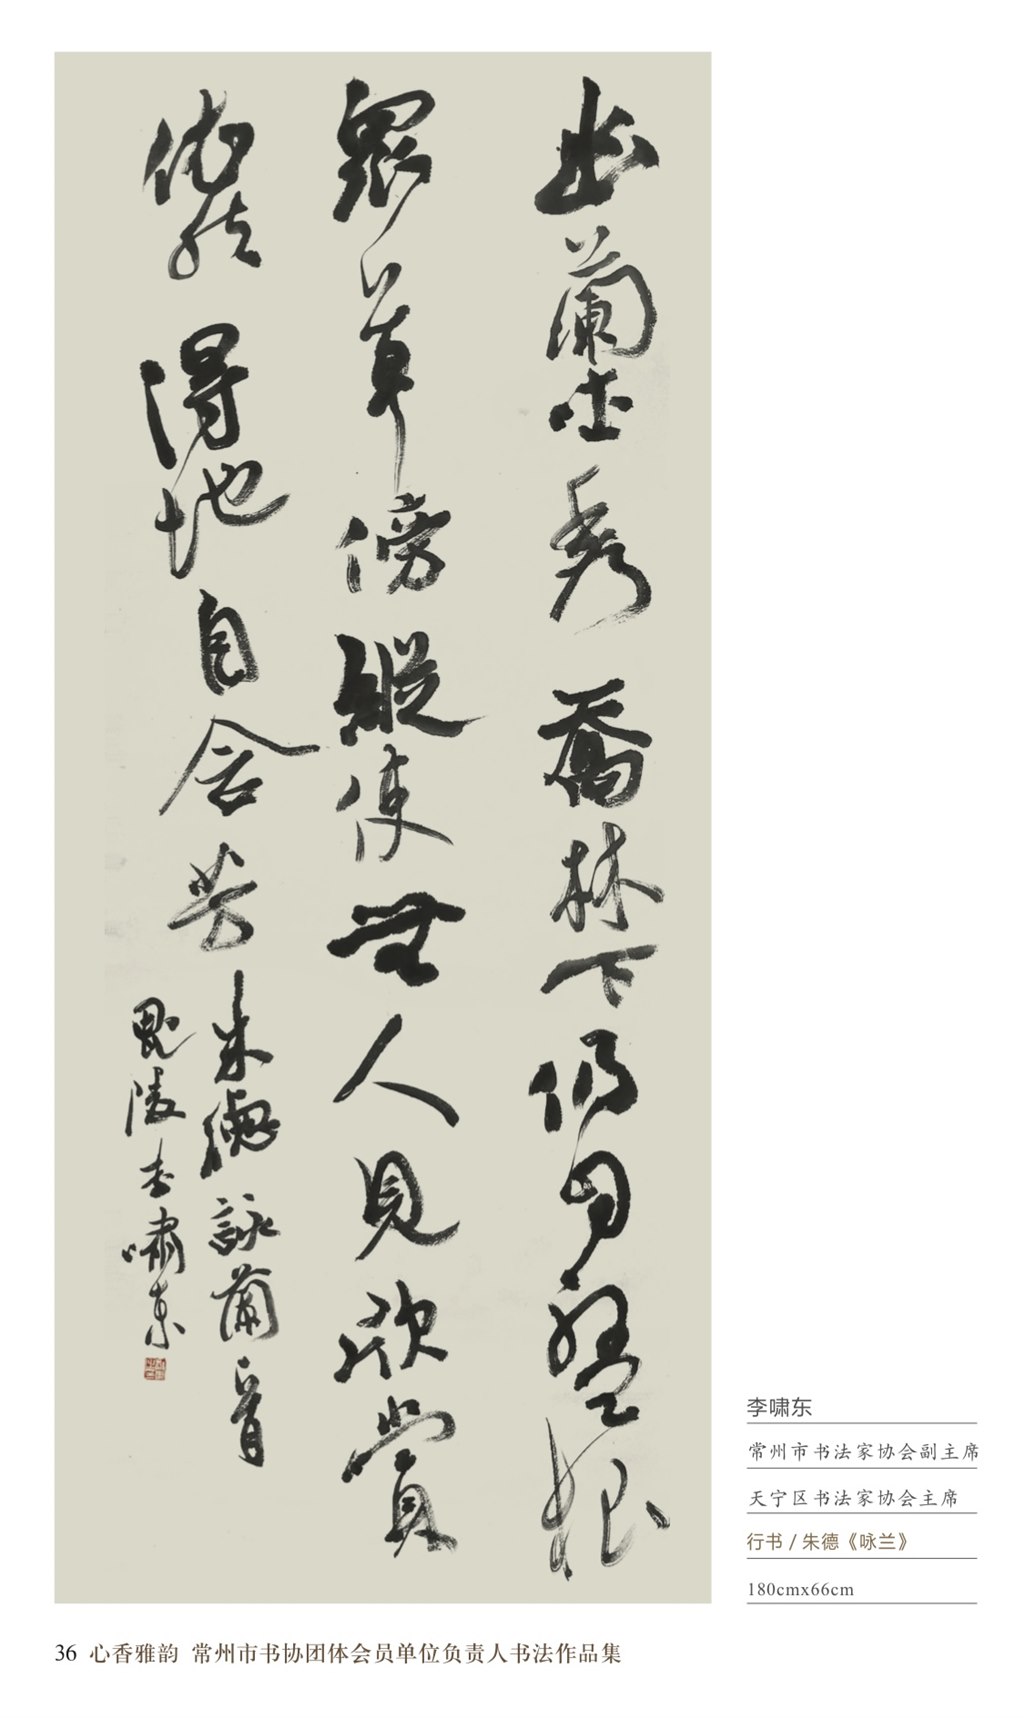 幽蘭吐秀喬林下仍自盤根
眾草傍縱使無人見欣賞
依然得地自含芳 朱德詠蘭一首
毘陵李嘯東
李啸东
常州市书法家协会副主席
天宁区书法家协会主席
行书 / 朱德《咏兰》
180cmx66cm
36 心香雅韵 常州市书协团体会员单位负责人书法作品集